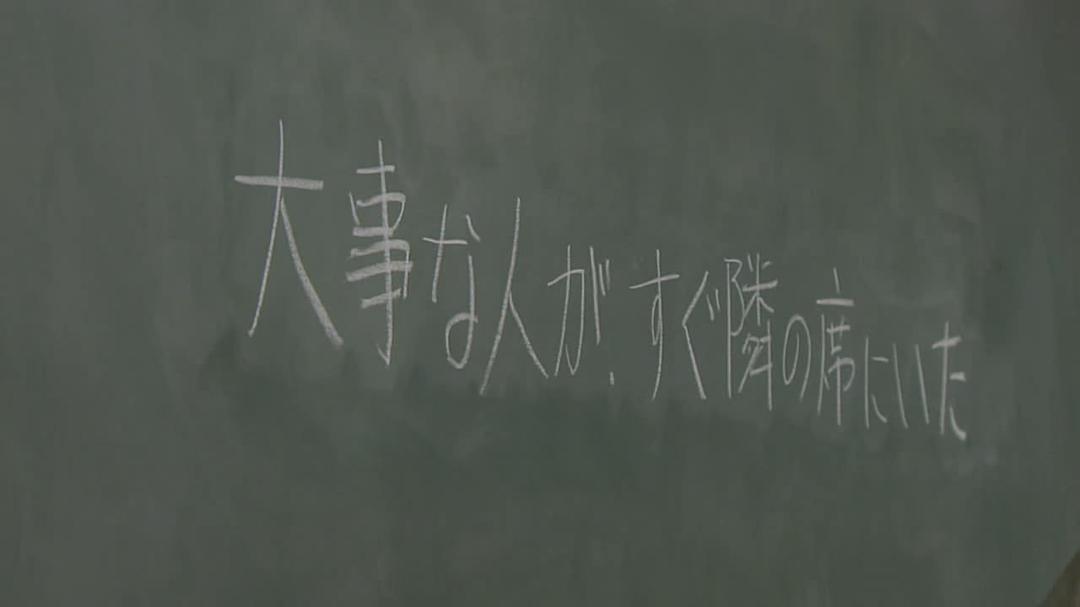 大事な人が、すぐ隣の席にいた